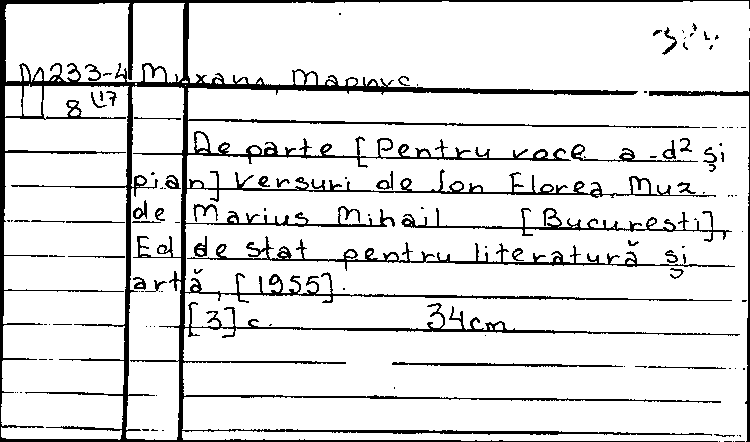 П 233-4 Михаил, Мариус.
8 17
De parte [Pentru voce a-d² și
pian] Versuri de Ion Florea, Muz.
de Marius Mihail [București],
Ed de stat pentru literatură și
artă, [1955].
[3] c. 34cm